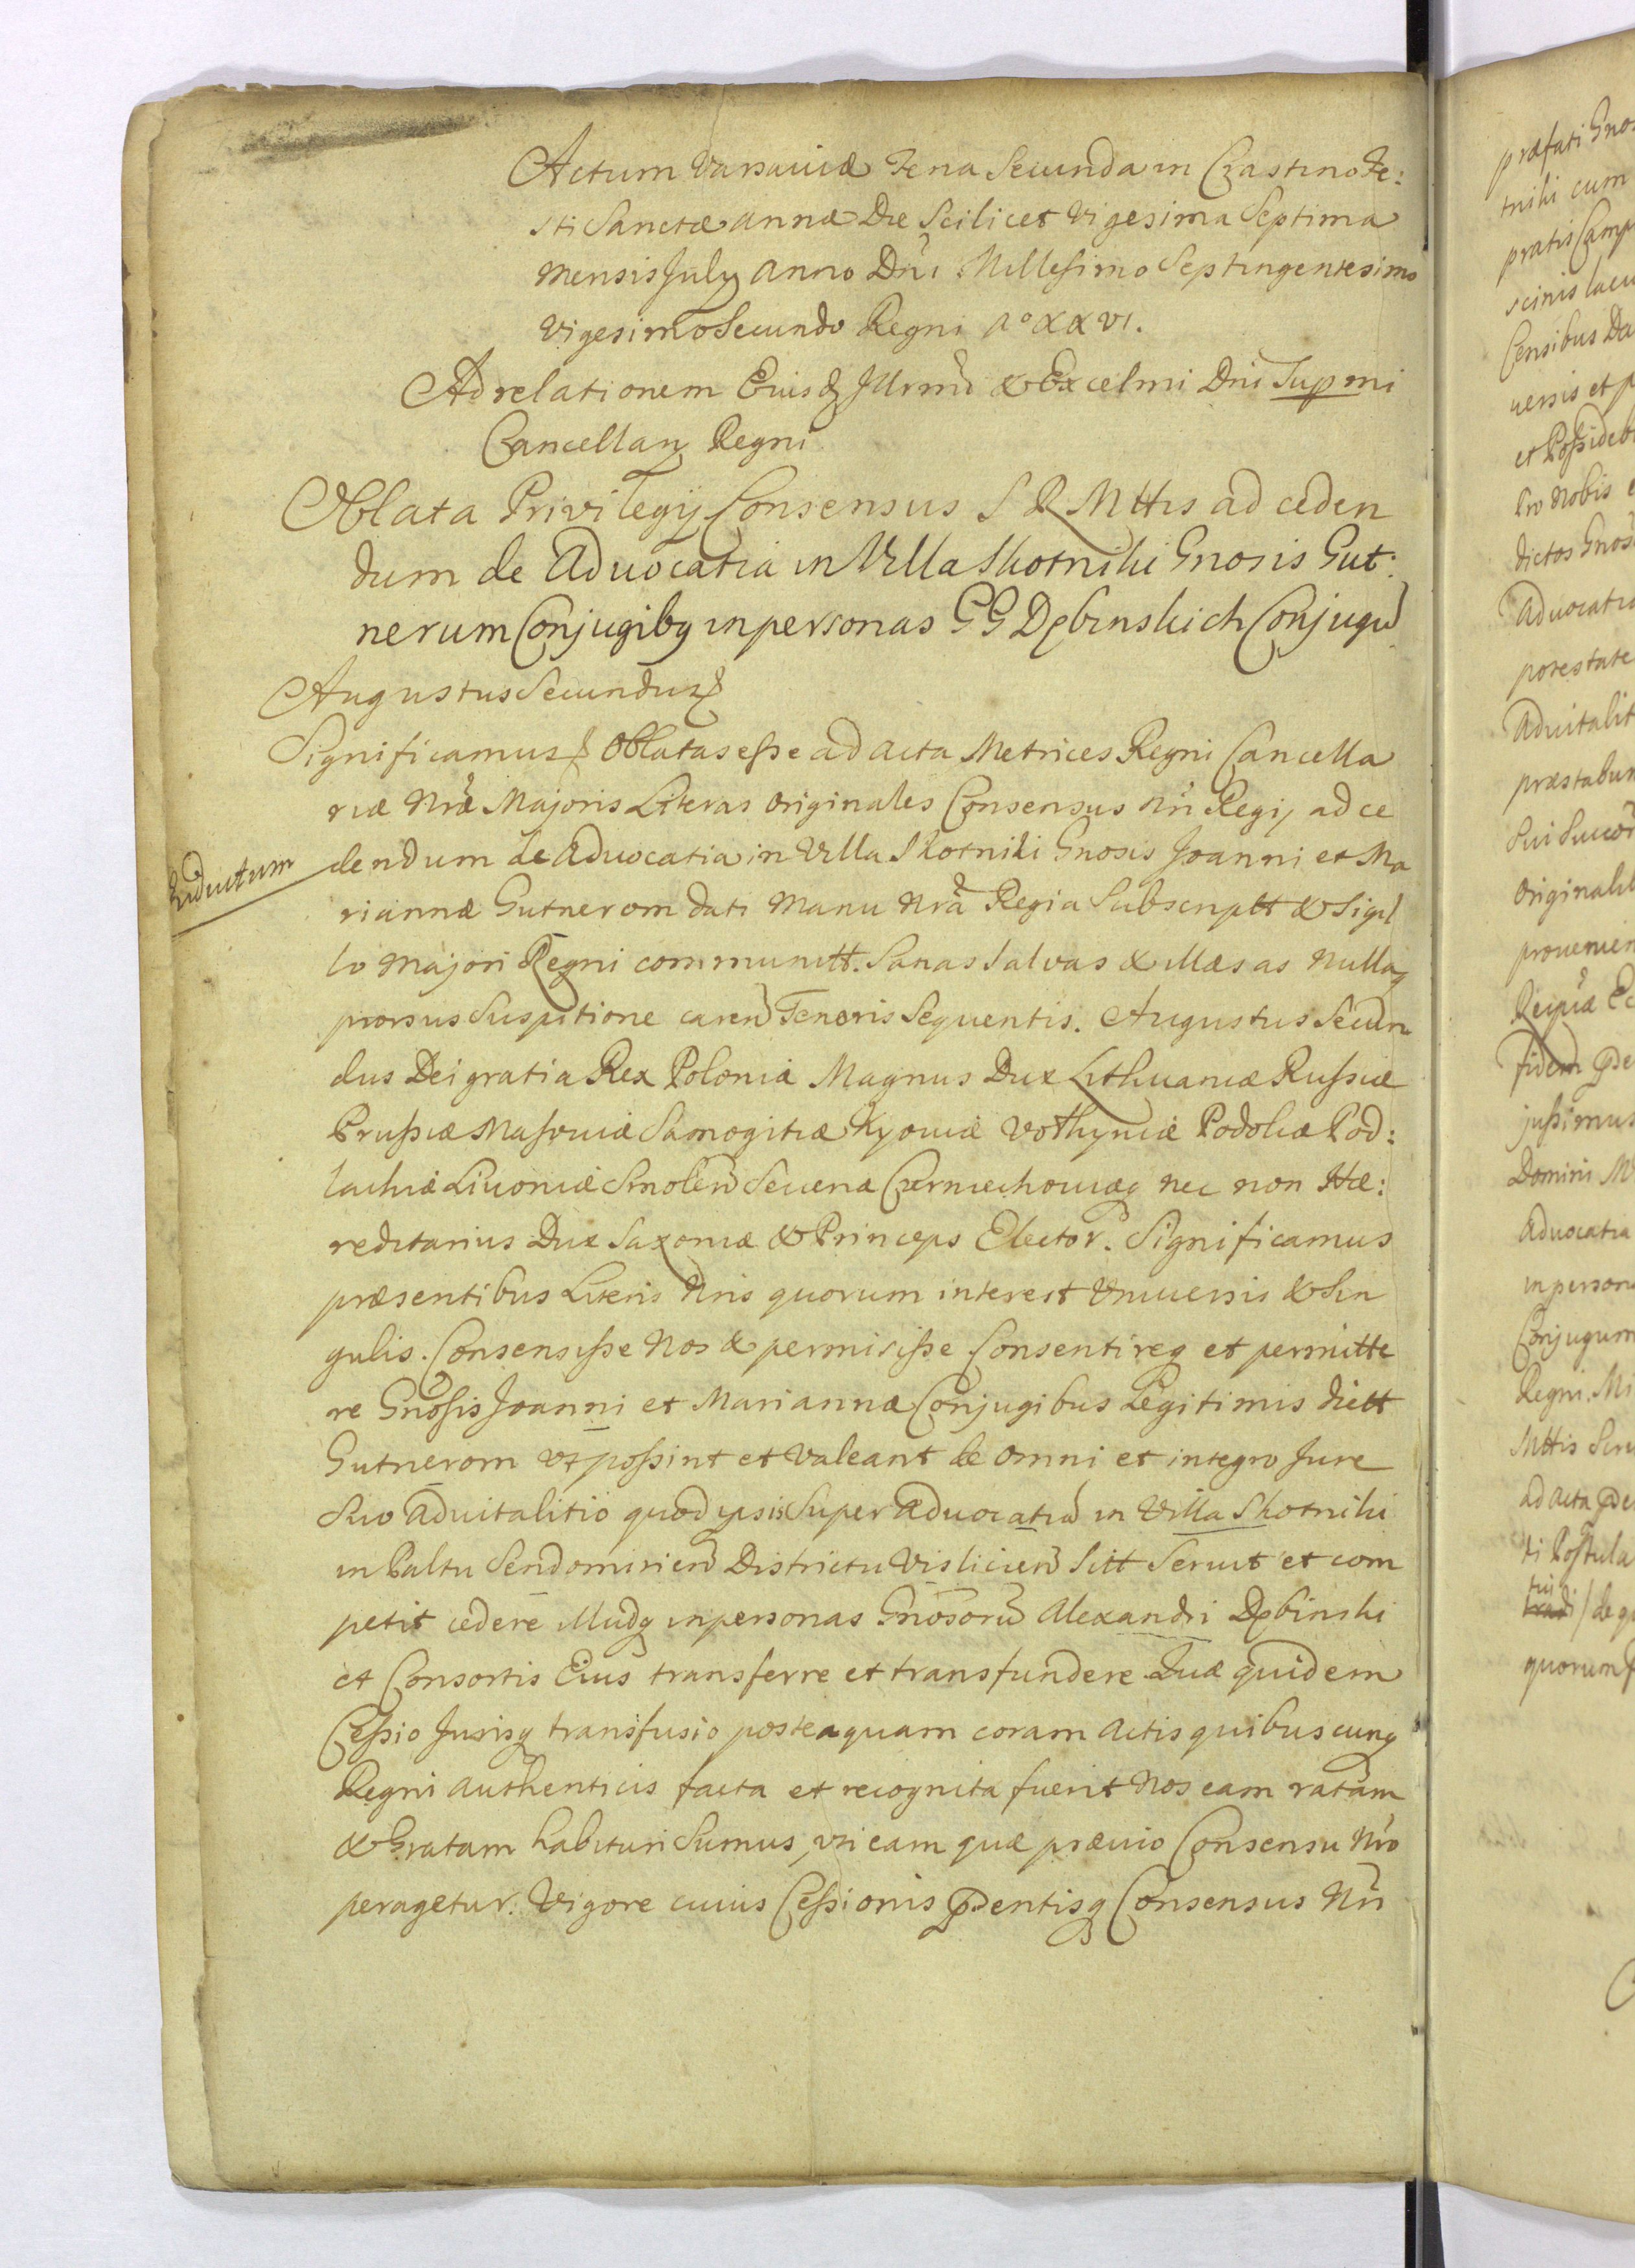 Actum Varsaviæ Feria Secunda in Crastino Fe:
sti Sanctæ Annæ Die Scilicet Vigesima Septima
Mensis July Anno Dni Millesimo Septingentesimo
Vigesimo Secundo Regni Aº XXVI.
Ad relationem Eiusd Illrmi & Excelmi Dni Supmi
Cancellarij Regni
Oblata Privilegij Consensus S R Mttis ad ceden
dum de Advocatia in Villa Skotniki Gnosis Gut:
nerum Conjugibq in personas GG Dębinskich Conjugu
Augustus Secundus
Significamus Oblatas esse ad Acta Metrices Regni Cancella
riæ Nræ Majoris Literas Originales Consensus Nri Regij ad ce
dendum de Advocatia in Villa Skotniki Gnosis Joanni et Ma
riannæ Gutnerom dati Manu Nra Regia Subscriptt & Sigil
lo Majori Regni communitt. Sanas Salvas & illæsas Nullaq
prorsus Suspitione caren Tenoris Sequentis. Augustus Secun
dus Dei gratia Rex Poloniæ Magnus Dux Lithuaniæ Russiæ
Prussiæ Masoviæ Samogitiæ Kyoviæ Volhyniæ Podoliæ Pod:
lachiæ Livoniæ Smolen Seveæ Czerniechoviæq nec non Hæ:
reditarius Dux Saxoniæ & Princeps Elector. Significamus
præsentibus Literis Nris quorum interest Universis & Sin
gulis. Consensisse Nos & permisisse Consentireq et permitte
re Gnosis Joanni et Mariannæ Conjugibus Legitimis dictt
Gutnerom Vt possint et Valeant de Omni et integro Jure
Suo Advitalitio quod ipsis Super Advocatia in Villa Skotniki
in Paltu Sendomirien Districtu Vislicien Sitt Servit et com
petit cedere Illudq in personas Gnosoru Alexandri Dębinski
et Consortis Eius transferre et transfundere Quæ quidem
Cessio Jurisq transfusio posteaquam coram Actis quibuscunq
Regni Authenticis facta et recognita fuerit Nos eam ratam
& Gratam habituri Sumus, uti eam quæ prævio Consensu Nro
peragetur. Vigore cuius Cessionis pdentisq Consensus Nri
præfati Gnos
tniki cum
pratis Camp
scinis lacu
Censibus Da
versis et p
et Possideb
Pro Nobis e
dictos Gnos
Advocatia
potestate
Advitalit
præstabun
Sui Succor
Originalib
provenien
Reipcæ Ec
fidem
jussimus
Domini M
Advocatia
in person
Conjugum
Regni. Mi
Mttis
ad Acta
ti Postula
de q
quorum